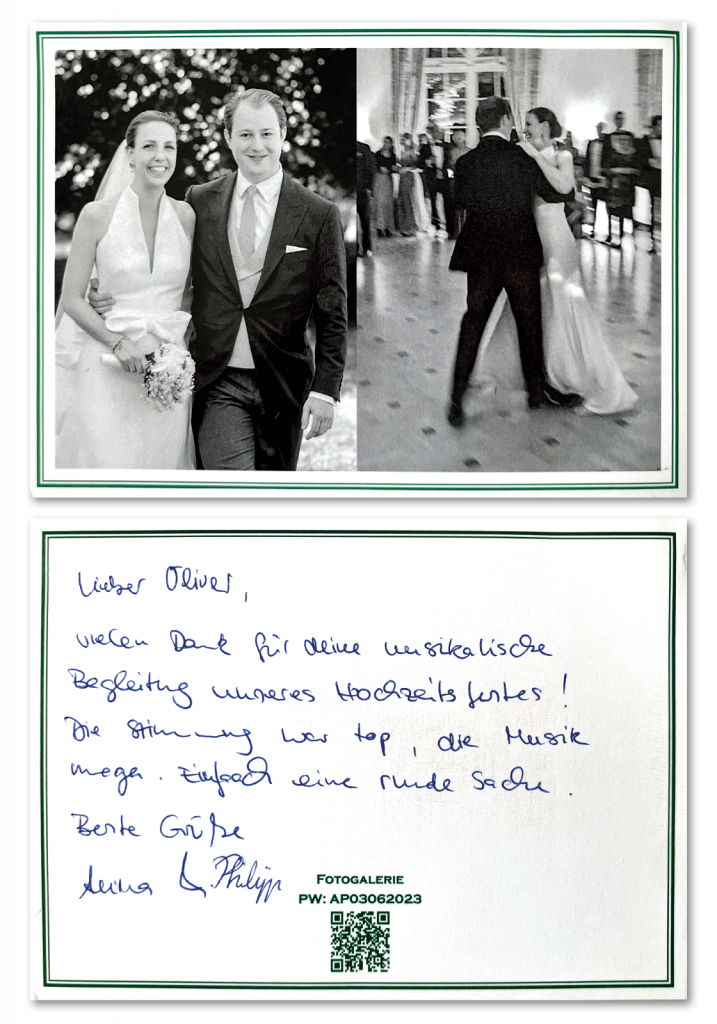 Lieber Oliver,
vielen Dank für deine musikalische
Begleitung unseres Hochzeitsfestes!
Die Stimmung war top, die Musik
mega. Einfach eine runde Sache.
Beste Grüße
Anna & Philipp
Fotogalerie
PW: AP03062023